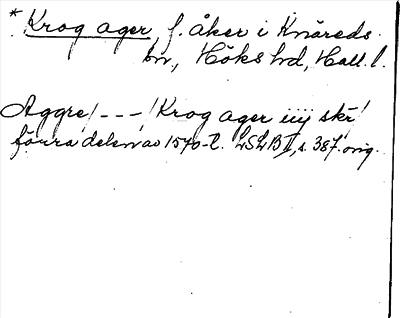 * Krog ager, f. åker i Knäreds
bn, Höks hd, Hall. l.
Aggre/---/Krog ager iiij skr/
förra delen av 1570-t. LSLB II, s. 387. orig.